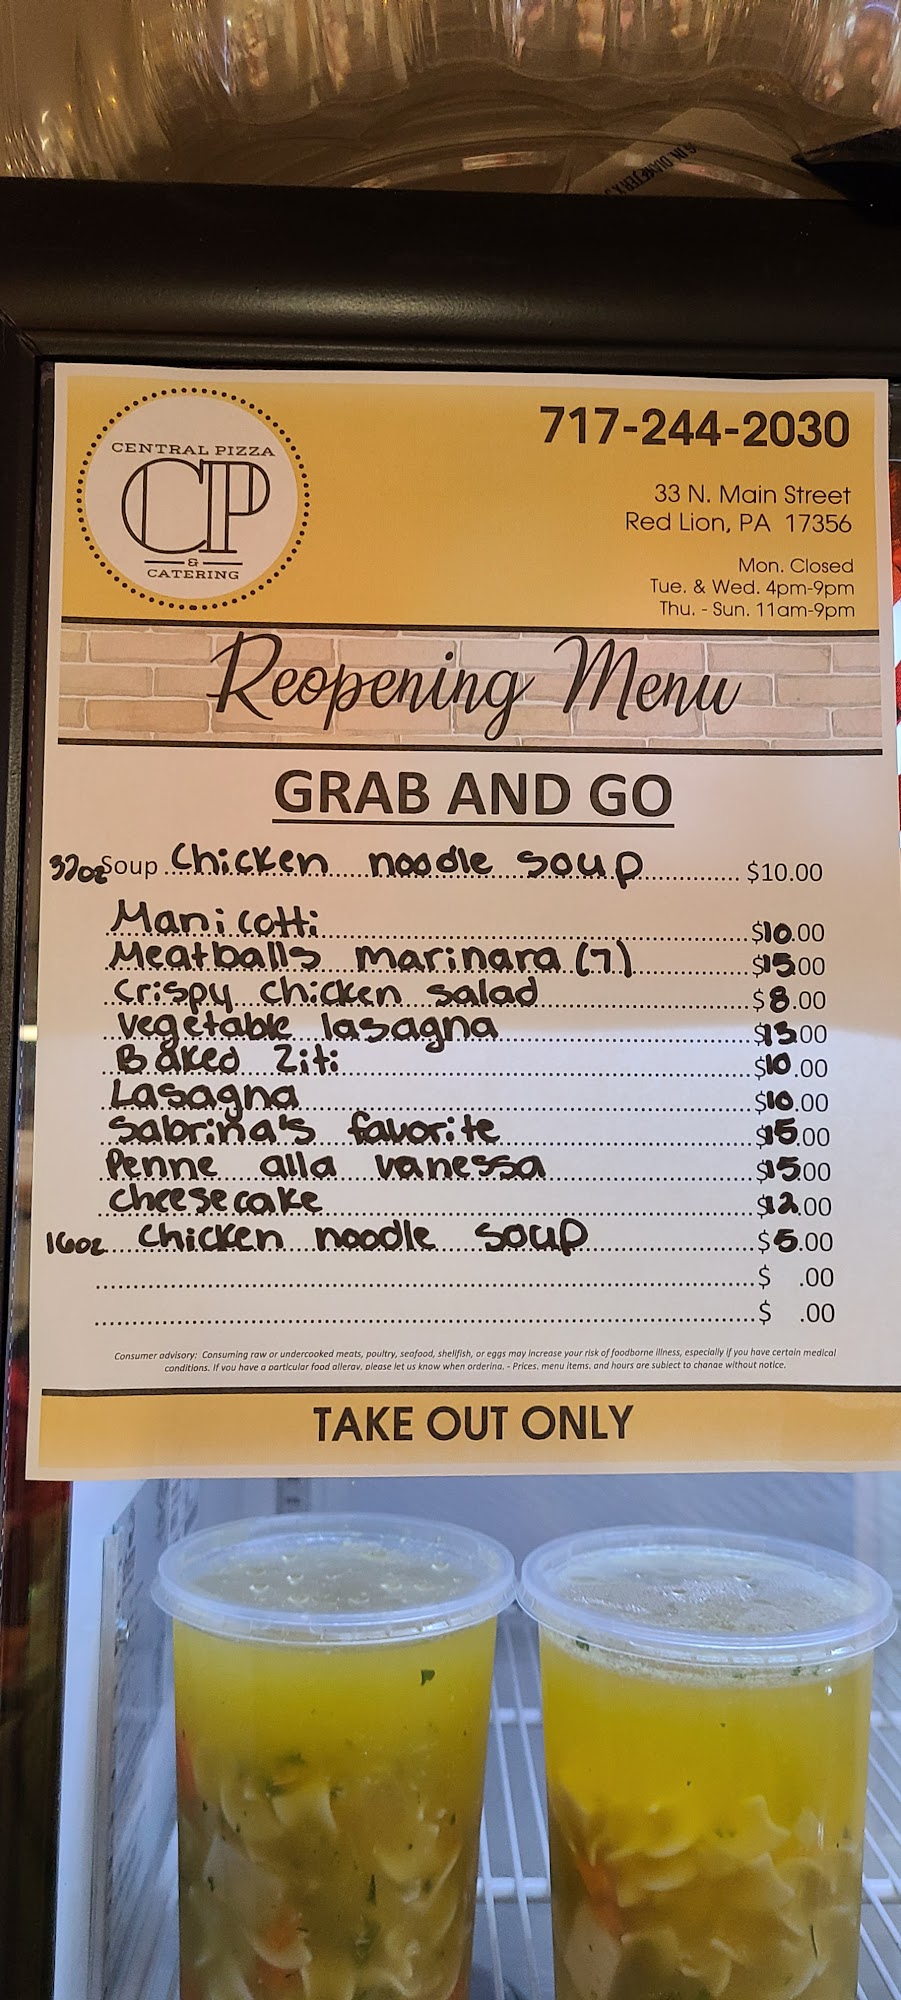 CENTRAL PIZZA
CP
&
CATERING
717-244-2030
33 N. Main Street
Red Lion, PA 17356
Mon. Closed
Tue. & Wed. 4pm-9pm
Thu. - Sun. 11am-9pm
Reopening Menu
GRAB AND GO
32oz Soup Chicken noodle soup $10.00
Manicotti $10.00
Meatballs marinara (7) $15.00
Crispy chicken salad $8.00
Vegetable lasagna $13.00
Baked Ziti $10.00
Lasagna $10.00
Sabrina's favorite $15.00
Penne alla vanessa $15.00
Cheesecake $12.00
16oz Chicken noodle soup $5.00
$ .00
$ .00
Consumer advisory: Consuming raw or undercooked meats, poultry, seafood, shellfish, or eggs may increase your risk of foodborne illness, especially if you have certain medical
conditions. If you have a particular food allergy, please let us know when ordering. - Prices, menu items, and hours are subject to change without notice.
TAKE OUT ONLY